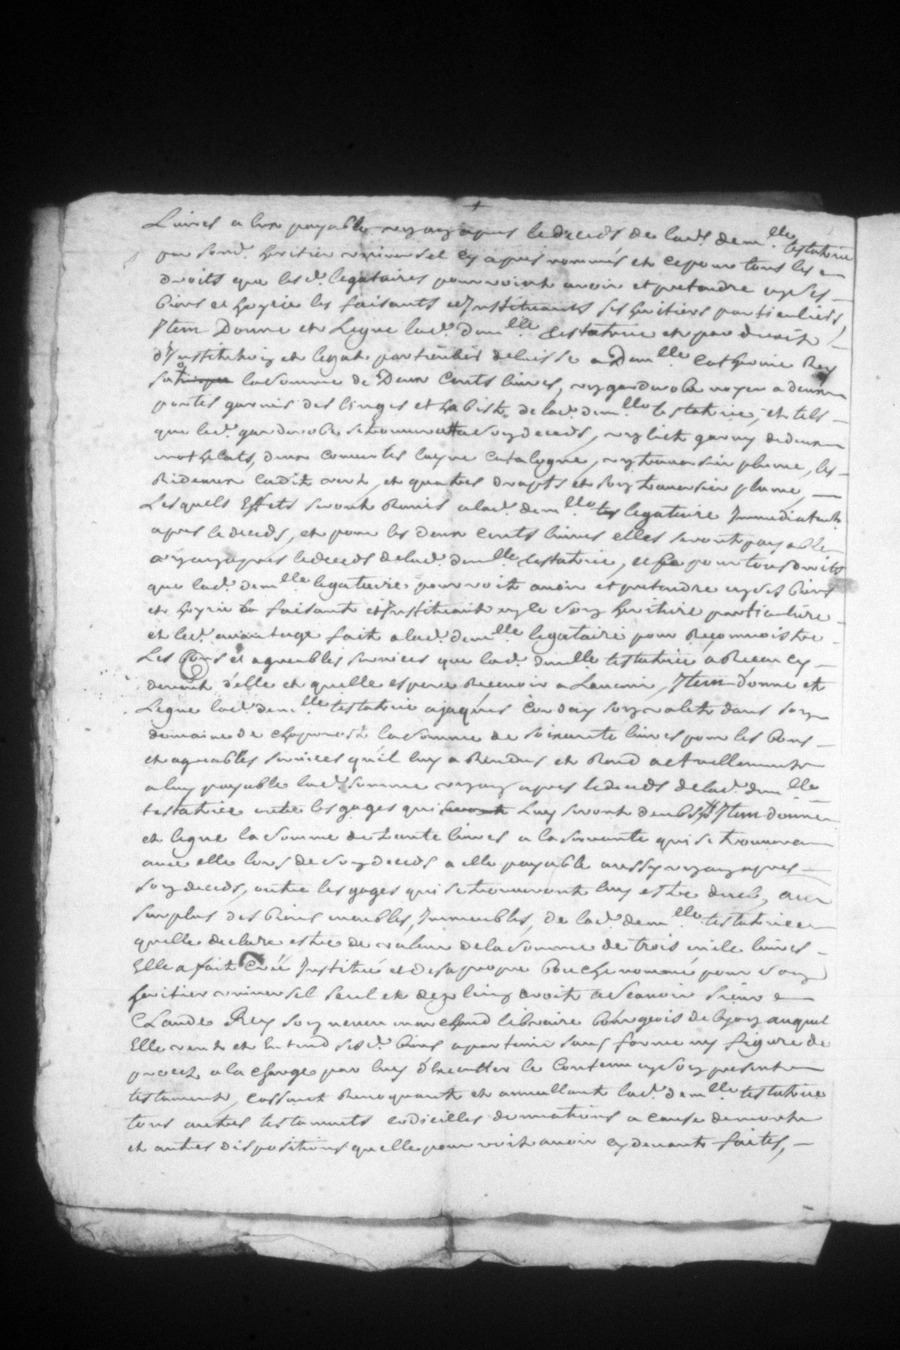 Livres a luy payable un an apres le deceds de lad.e dem.lle testatrice
par sond.t heritier universel cy apres nommé et ce pour tous les
droits que lesd.t legataires pourroient avoir et pretendre en ses
biens et hoyrie les faisants et Instituants ses heritiers particuliers,
Item Donne et Legue lad.e dem.lle testatrice et par droit
d'Institution et legat particulier delaisse a Dem.lle Catherine Rey
sa la somme de Deux Cents livres, un garderobe noyer a deux
portes garnis des linges et habits de lad.e dem.lle testatrice, et tels
que led.t garderobe se trouvera a son deceds, un lict garny de deux
mathelats, deux couvertes layne Catalogne, un traversier plume, les
Rideaux Cadis vert, et quatres draps et son traversier plume,
Lesquels Effets seront Remis a lad.e dem.lle legataire Immediatem.t
apres le deceds, et pour les deux cents livres elles seront payable
un an apres le deceds de lad.e dem.lle testatrice, et ce pour tous droits
que lad.e dem.lle legataire pourroit avoir et pretendre en ses biens
et hoyrie la faisante et Instituante en le son heritiere particuliere
et led.t avantage fait a lad.e dem.lle legataire pour Reconnoistre
Les bons et agreables services que lad.e dem.lle testatrice a Receu cy
devant d'elle et quelle espere Recevoir a Lavenir, Item donne et
Legue lad.e dem.lle testatrice a jaques son valet dans son
domaine de la somme de soixante livres pour les bons
et agreables services quil luy a Rendus et Rend actuellement
a luy payable lad.e somme un an apres le deceds de lad.e dem.lle
testatrice outre les gages qui Luy seront deubs, Item donne
et legue la somme de trante livres a la servante qui se trouvera
avec elle lors de son deceds a elle payable aussy un an apres
son deceds, outre les gages qui se trouveront luy estre deub, au
surplus des biens meubles, Immeubles, de lad.e dem.lle testatrice
quelle declare estre de valeur de la somme de trois mile livres
Elle a fait Créé Institué et de sa propre bouche nommé pour son
heritier universel seul et de plein droit a scavoir sieur
Claude Rey son neveu marchand libraire bourgeois de lyon auquel
Elle veut et Entend sesd.t biens apartenir sans forme ny figure de
procez a la charge par luy d'Executter le Contenu en son present
testament, cassant Revoquant et annullant lad.e dem.lle testatrice
tous autres testaments codicilles donnations a cause de mort
et autres dispositions quelle pourroit avoir cy devant faites,